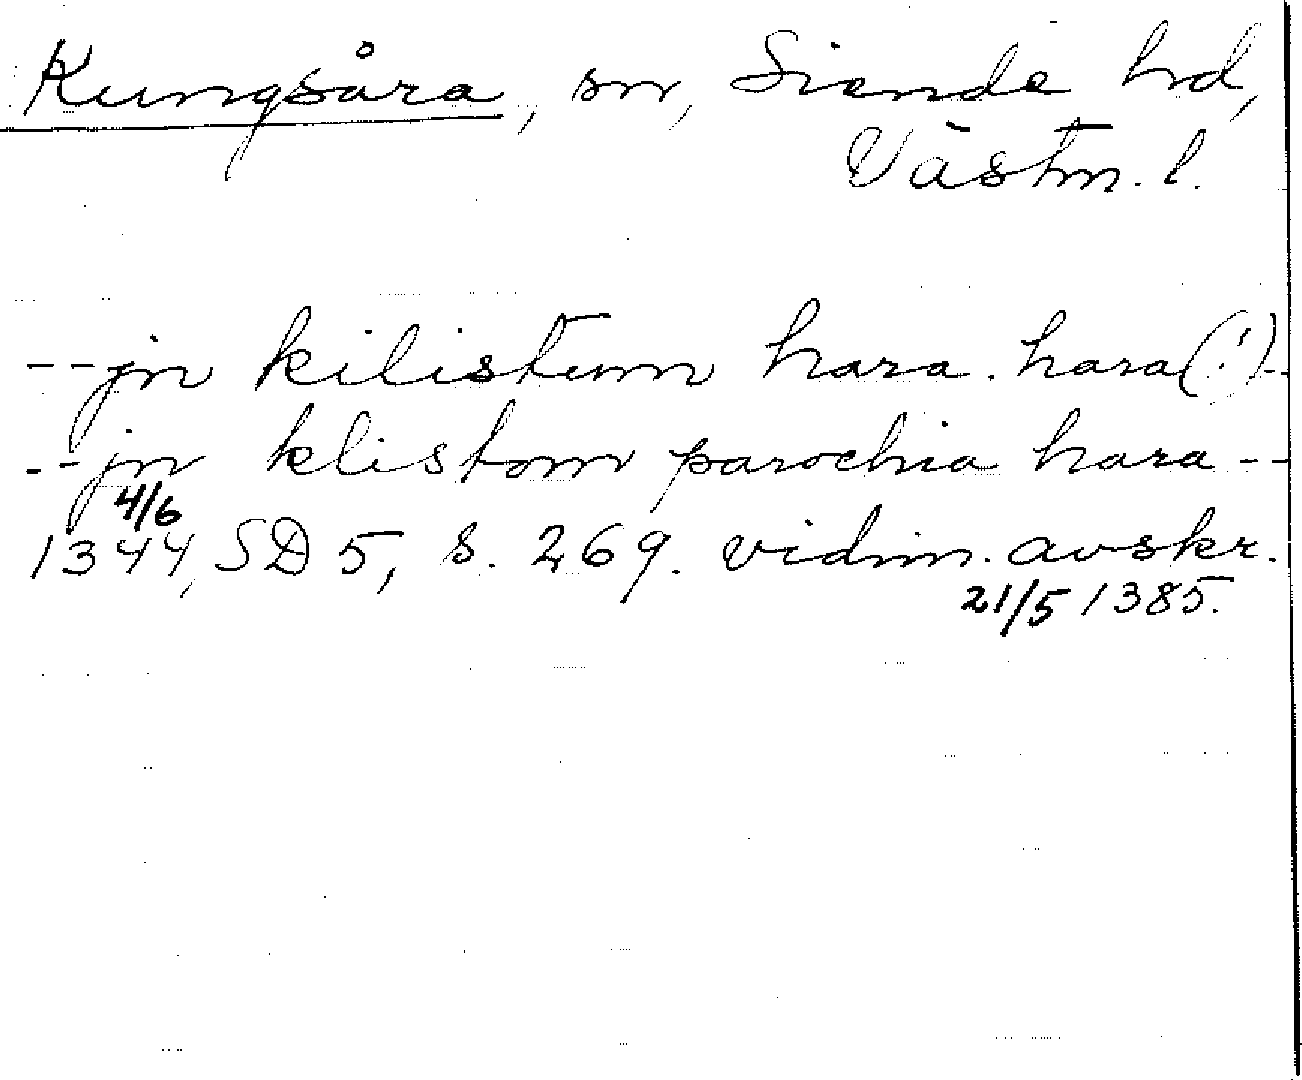 Kungsåra, sn, Siende hd,
Västm. l.
--jn kilistum hara. hara(!)--
--jn klistom parochia hara--
4/6
1344, SD 5, s. 269. vidim. avskr.
21/5 1385.